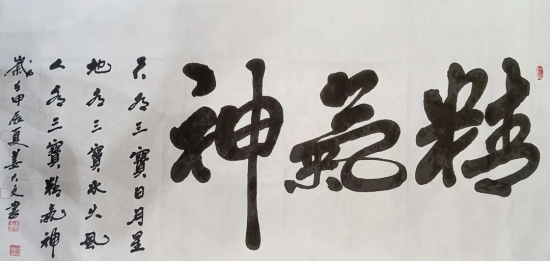 精氣神
天有三寶日月星
地有三寶水火風
人有三寶精氣神
歲在甲辰夏姜大文書